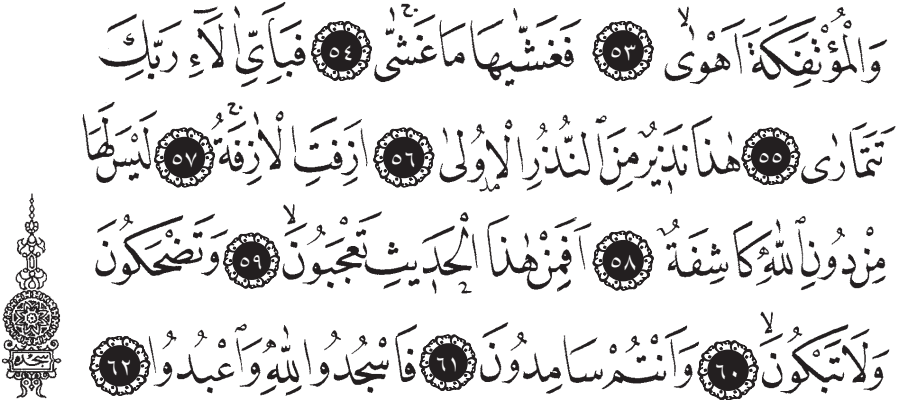 وَالْمُؤْتَفِكَةَ اَهْوٰىۙ ﴿٥٣﴾ فَغَشّٰيهَا مَا غَشّٰىۚ ﴿٥٤﴾ فَبِاَيِّ اٰلَٓاءِ رَبِّكَ
تَتَمَارٰى ﴿٥٥﴾ هٰذَا نَذ۪يرٌ مِنَ النُّذُرِ الْاُو۫لٰى ﴿٥٦﴾ اَزِفَتِ الْاٰزِفَةُۚ ﴿٥٧﴾ لَيْسَ لَهَا
مِنْ دُونِ اللّٰهِ كَاشِفَةٌ ﴿٥٨﴾ اَفَمِنْ هٰذَا الْحَد۪يثِ تَعْجَبُونَۙ ﴿٥٩﴾ وَتَضْحَكُونَ
وَلَا تَبْكُونَۙ ﴿٦٠﴾ وَاَنْتُمْ سَامِدُونَ ﴿٦١﴾ فَاسْجُدُوا لِلّٰهِ وَاعْبُدُوا ﴿٦٢﴾
سجده